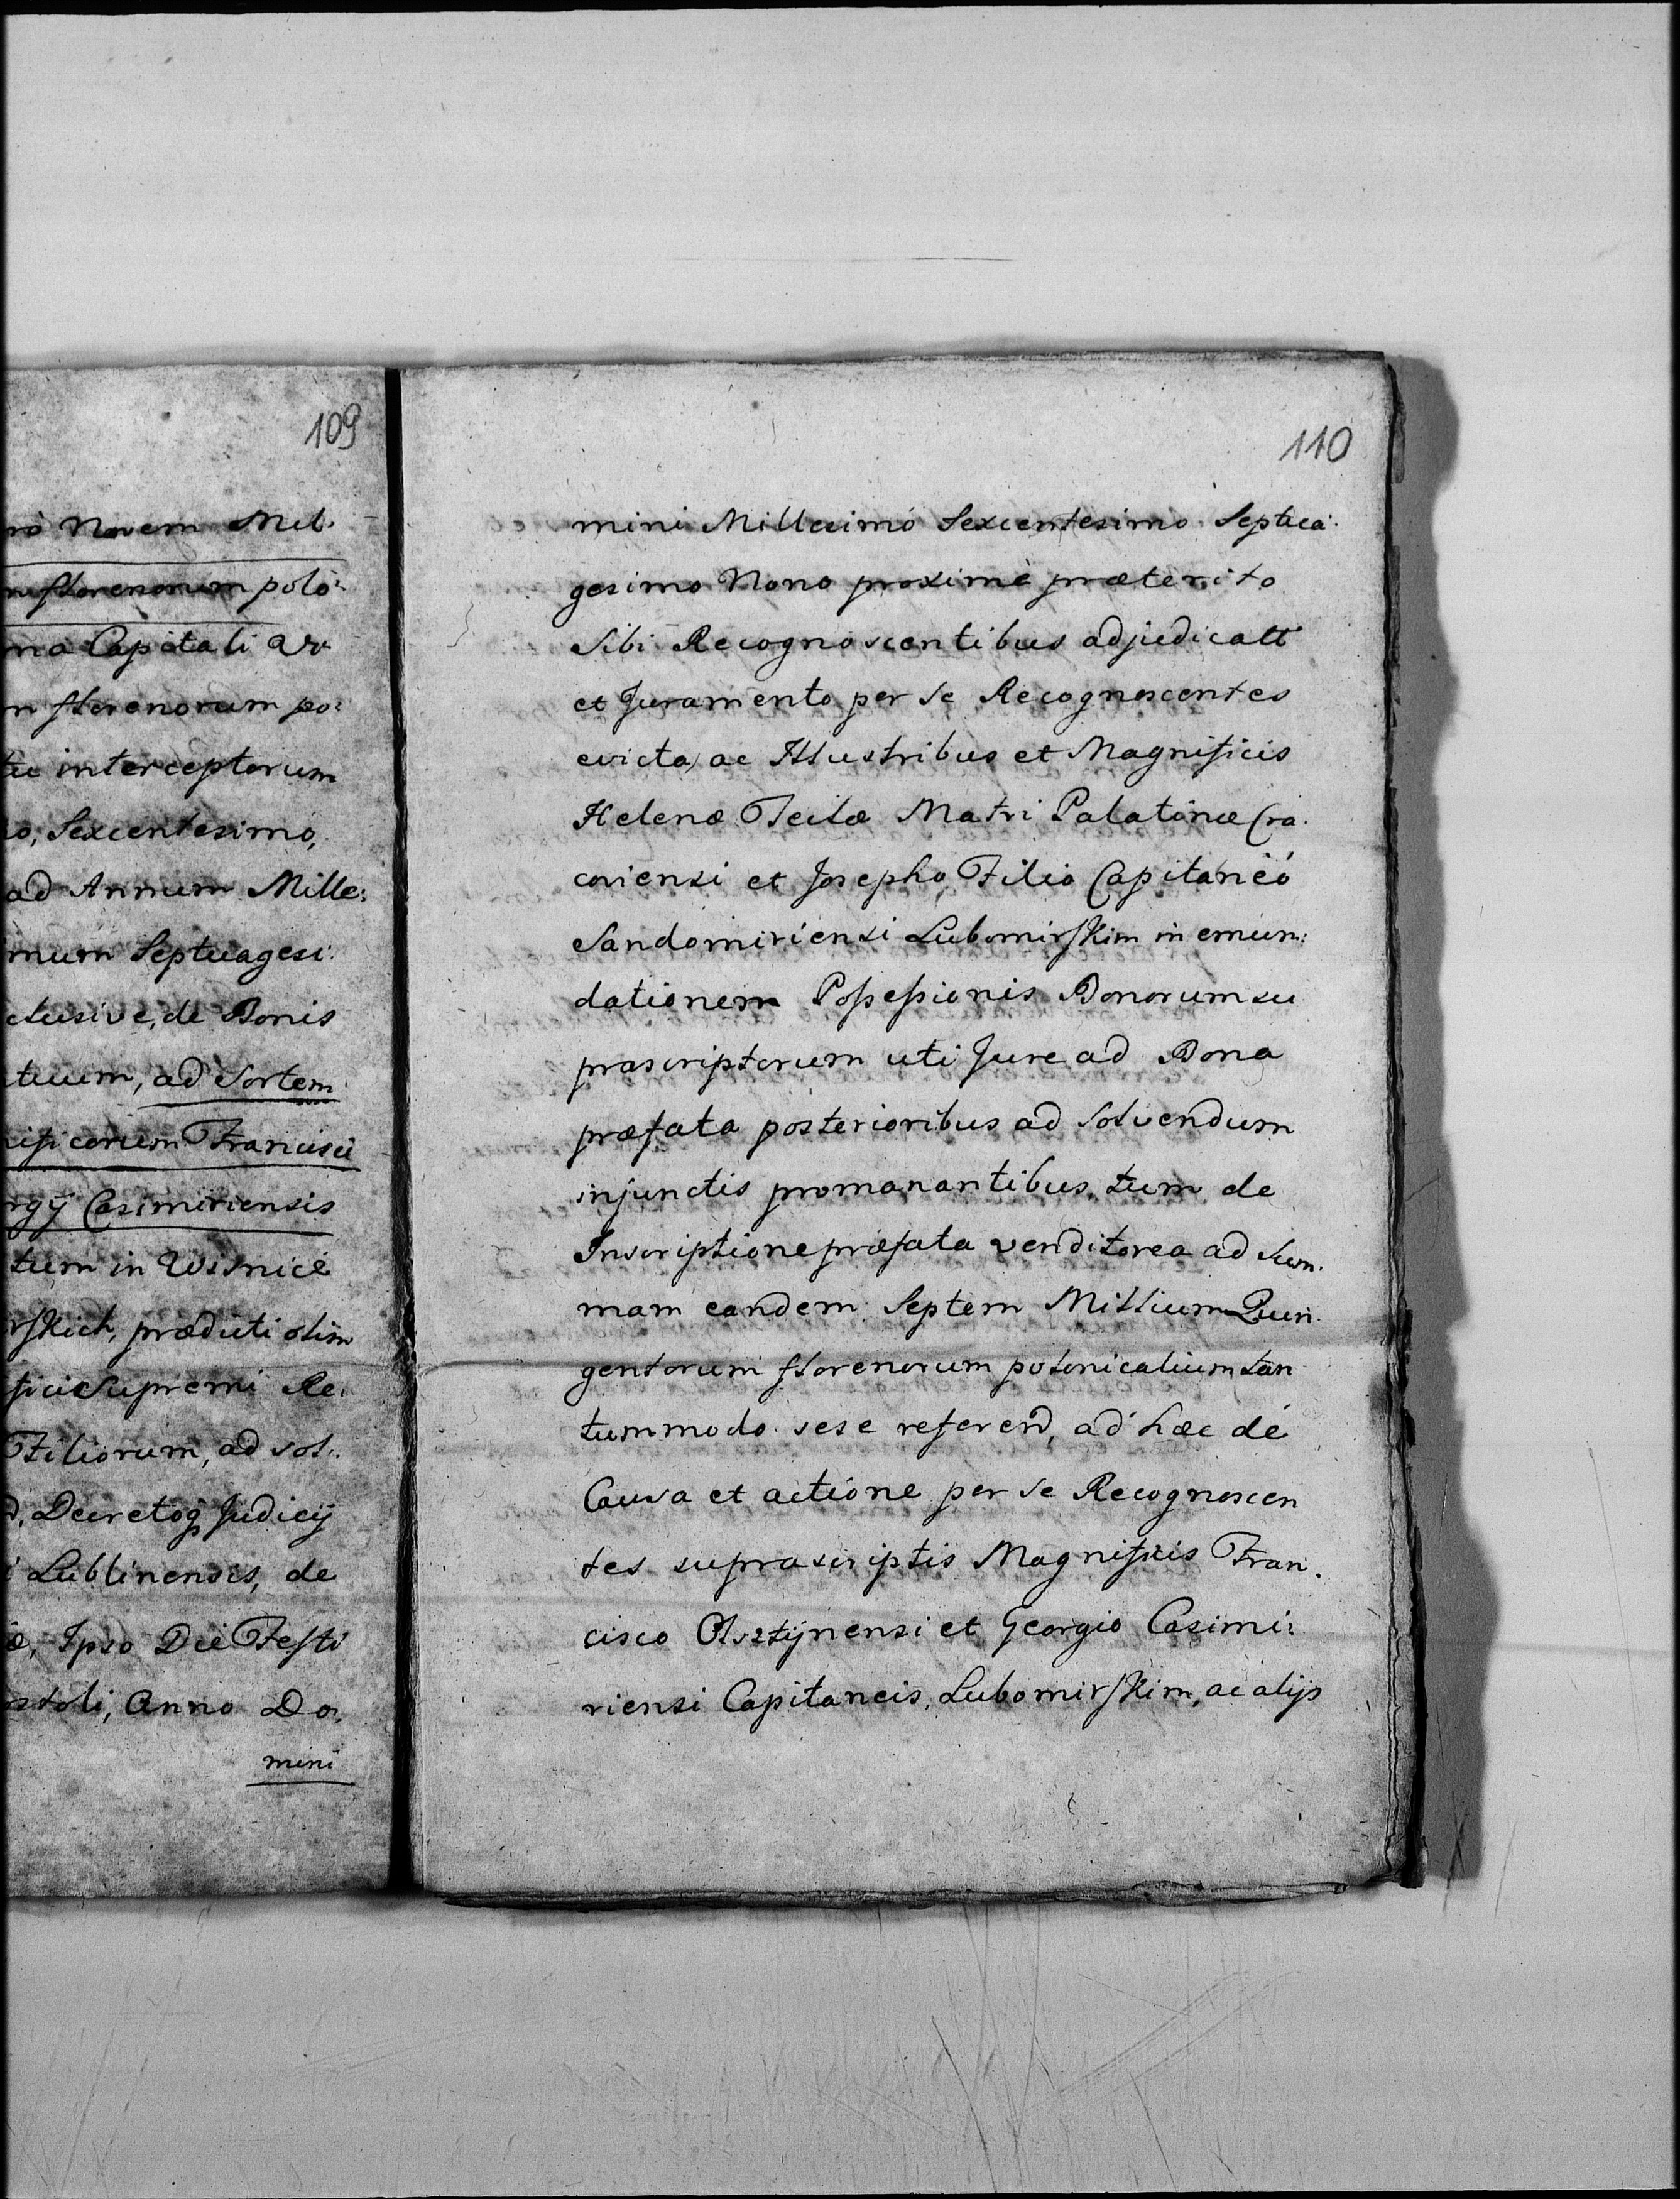 109
rò Novem Mil:
m florenorum polo:
ma Capitali ar
m florenorum po:
tu interceptorum
io, Sexcentesimo,
ad Annum Mille:
mum Septuagesi:
clusive, de Bonis
tuum, ad Sortem
ificorum Francisci
rgÿ Casimiriensis
tum in Wisnicè
rskich, præduti olim
fici Supremi Re:
Filiorum, ad sol:
d, Decretoq Judicÿ
i Lublinensis, de
æ, Ipso Die Festi
ostoli, Anno Do:
mini
110
mini Millesimo Sexcentesimo Septua:
gesimo Nono proximè præterito
Sibi Recognoscentibus adjudicatt
et Juramento per se Recognoscentes
evicta, ac Illustribus et Magnificis
Helenæ Teclæ Matri Palatinæ Cra:
coviensi et Josepho Filio Capitaneó
Sandomiriensi Lubomirskim in emun:
dationem Possessionis Bonorum su
prascriptorum uti Jure ad Bona
præfata posterioribus ad Solvendum
injunctis promanantibus, tum de
Inscriptione præfata venditorea ad Sum:
mam eandem Septem Millium Quin:
gentorum florenorum polonicalium tan
tummodo sese referend, ad hæc dé
Causa et actione per se Recognoscen
tes suprascriptis Magnificis Fran:
cisco Olsztÿnensi et Georgio Casimi:
riensi Capitaneis, Lubomirskim, ac alÿs